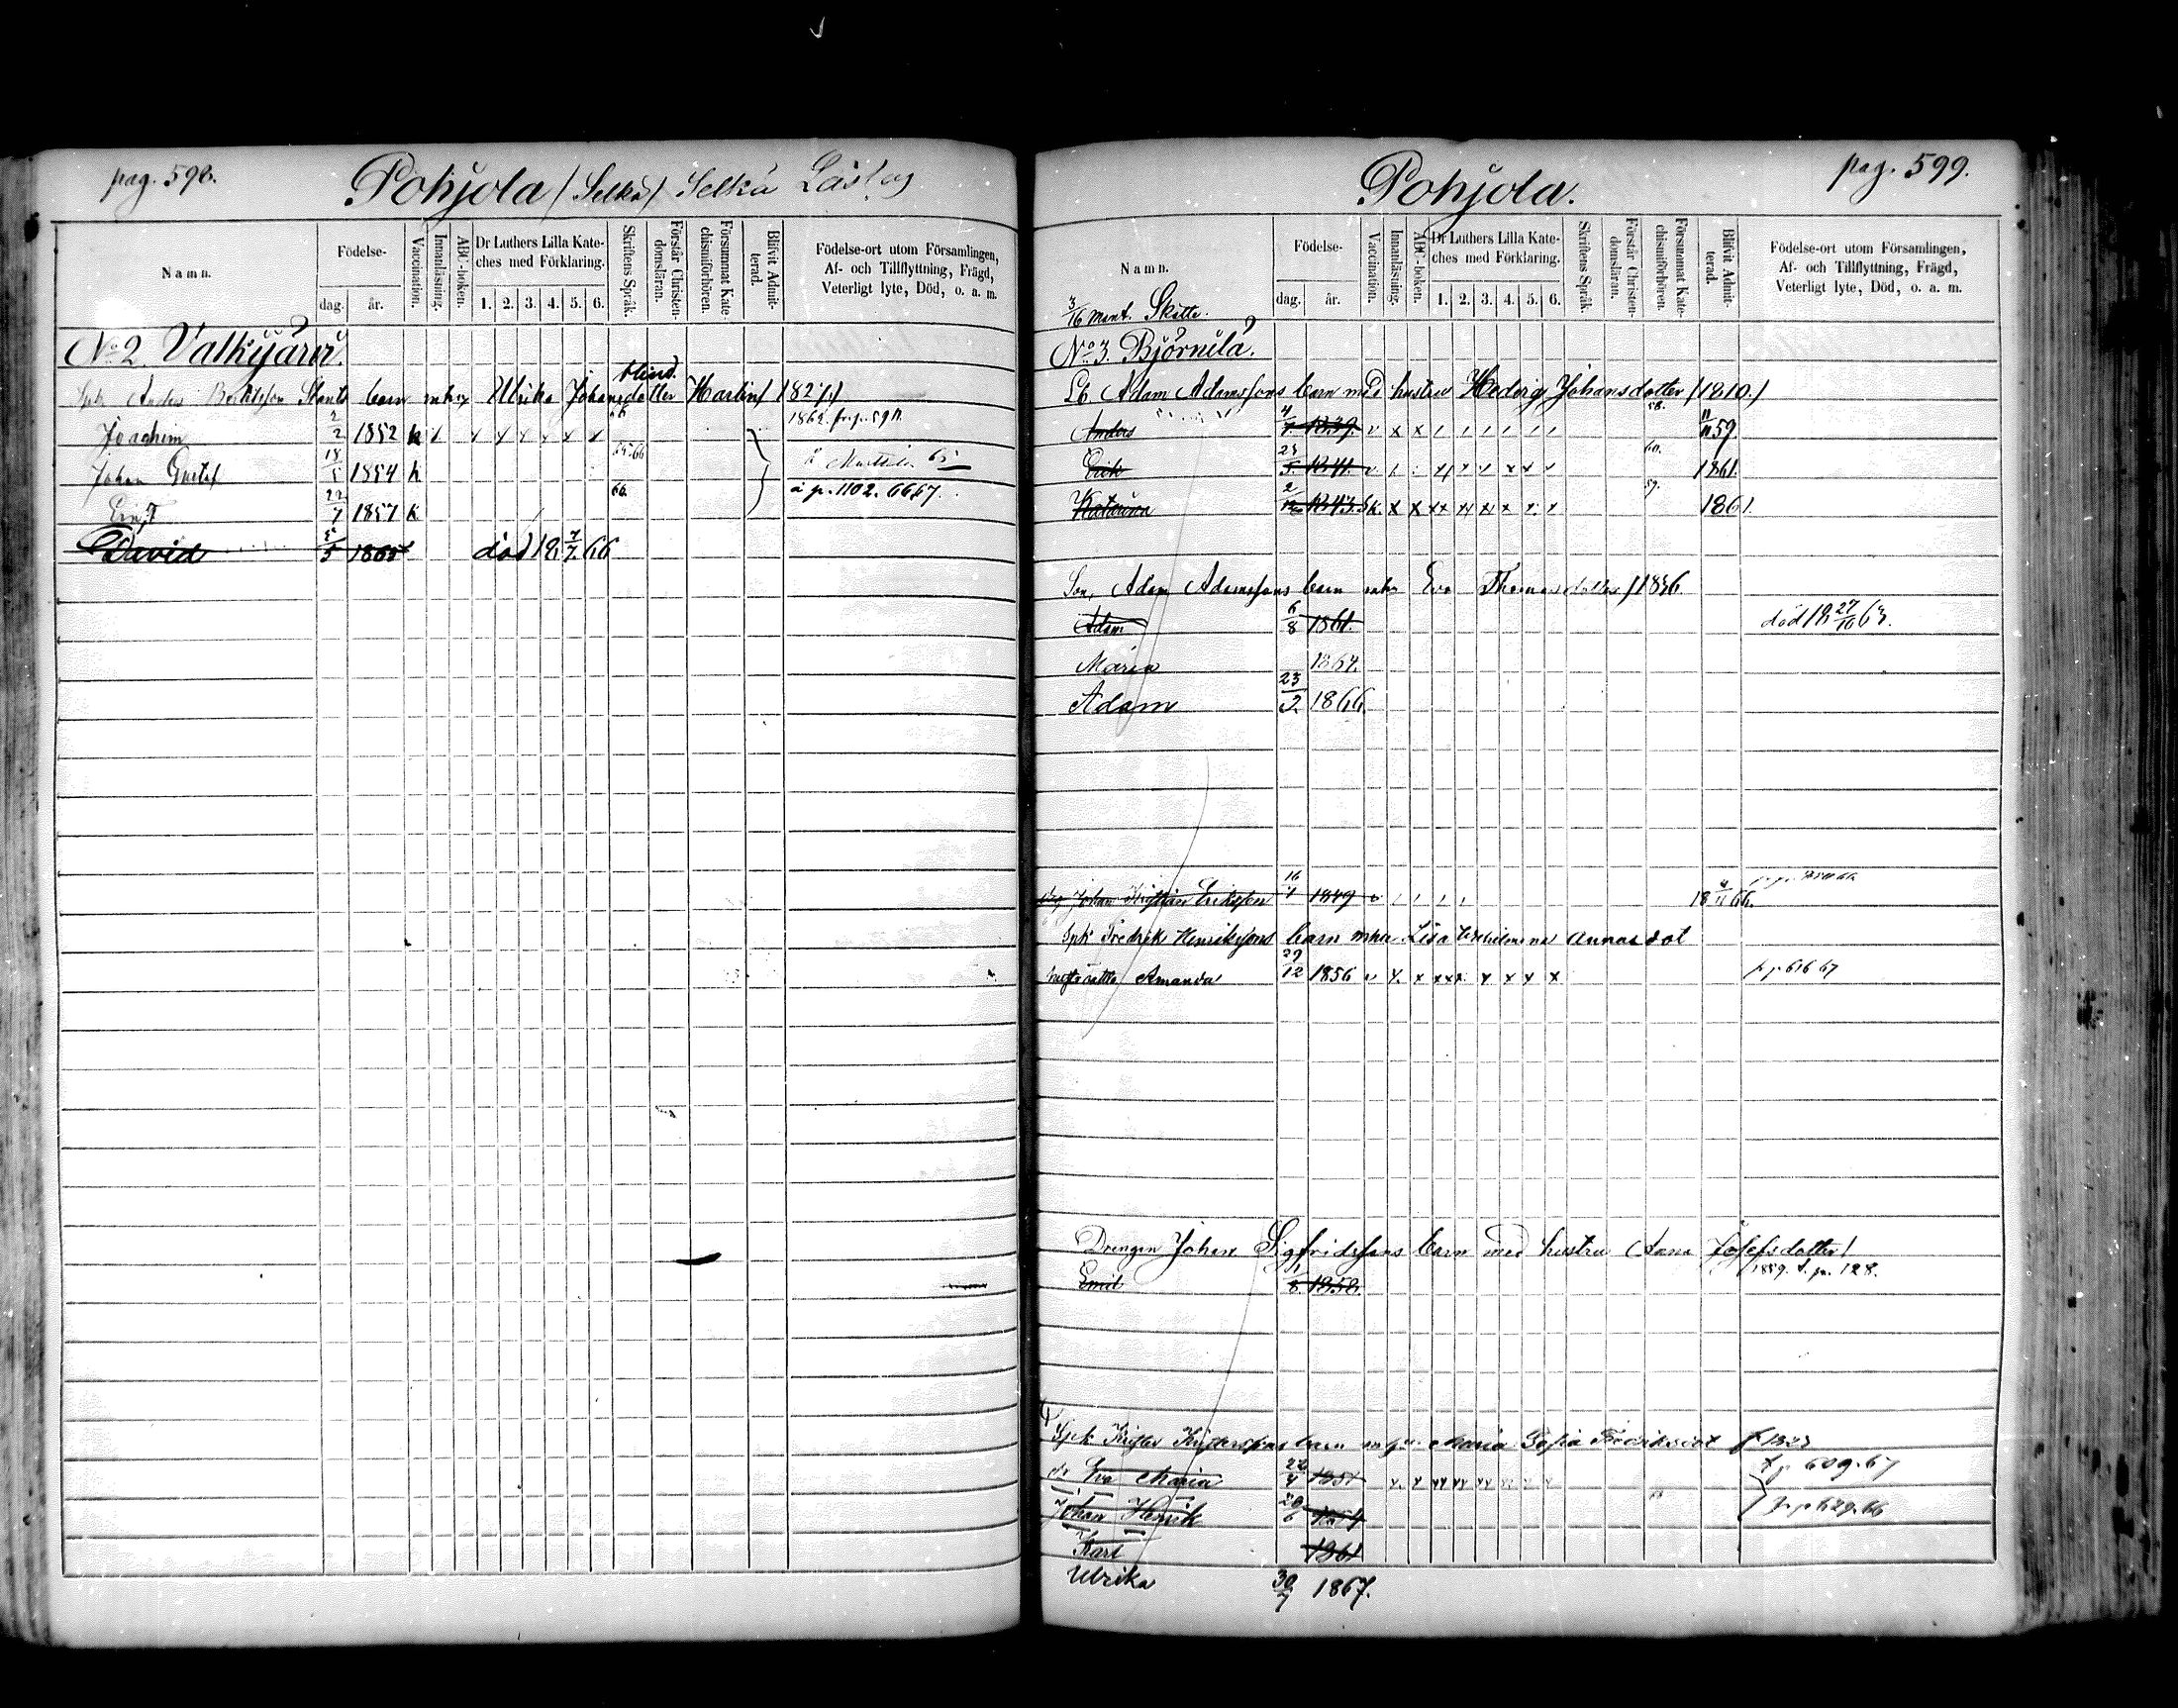 pag. 598.
Pohjola (Selkä) Selkä Läslag
Namn.
Födelse-
dag. år.
Vaccination.
Innanläsning.
ABC-boken.
Dr Luthers Lilla Kate-
ches med Förklaring.
1. 2. 3. 4. 5. 6.
Skriftens Språk.
Förstår Christen-
domsläran.
Försummat Kate-
chismiförhören.
Blifvit Admit-
terad.
Födelse-ort utom Församlingen,
Af- och Tillflyttning, Frägd,
Veterligt lyte, Död, o. a. m.
No 2. Valkijärvi.
blind.
Anders barn mhu Ulrika Johansdotter
Joachim 2/2 1852 k
Johan Gustaf 18/5 1854 k 65
22/7 1857 k 66. å p. 1102. 66,67.
David 5/5 1865 död 18 7/7 66
pag. 599.
Pohjola.
Namn.
Födelse-
dag. år.
Vaccination.
Innanläsning.
ABC-boken.
Dr Luthers Lilla Kate-
ches med Förklaring.
1. 2. 3. 4. 5. 6.
Skriftens Språk.
Förstår Christen-
domsläran.
Försummat Kate-
chismiförhören.
Blifvit Admit-
terad.
Födelse-ort utom Församlingen,
Af- och Tillflyttning, Frägd,
Veterligt lyte, Död, o. a. m.
3/16 mant. Skatte.
No 3. Björnilä.
Lb Adam Adamssons barn med hustru Hedvig Johansdotter (1810.)
Anders 1839. v x x 58. 59.
Erik 1841. v 60. 1861.
Katarina 2/12 1843. x x 59. 1861.
Son, Adam Adamssons barn mhu Eva Thomasdotter / 1836.
Adam 6/8 1861. död 18 27/10 63.
Maria 1864.
Adam 23/2 1866.
Johan Kristian Eriksson 16/1 1849 v 66.
Spk Fredrik Henrikssons barn mhu Lisa Wilhelmina Annasdot
Amanda 29/12 1856 v x x x x x x x p 616 67
Drengen Johan Sigfridssons barn med hustru Anna Josefsdotter /
Emil 1/8 1858. 1859. p. 128.
Spk barn Maria Sofia Fredriksdot f 1823
Eva Maria 22/4 1851 p 609. 67
Johan Henrik 20/6 1854 p 629. 66
Karl 1861
Ulrika 30/7 1867.